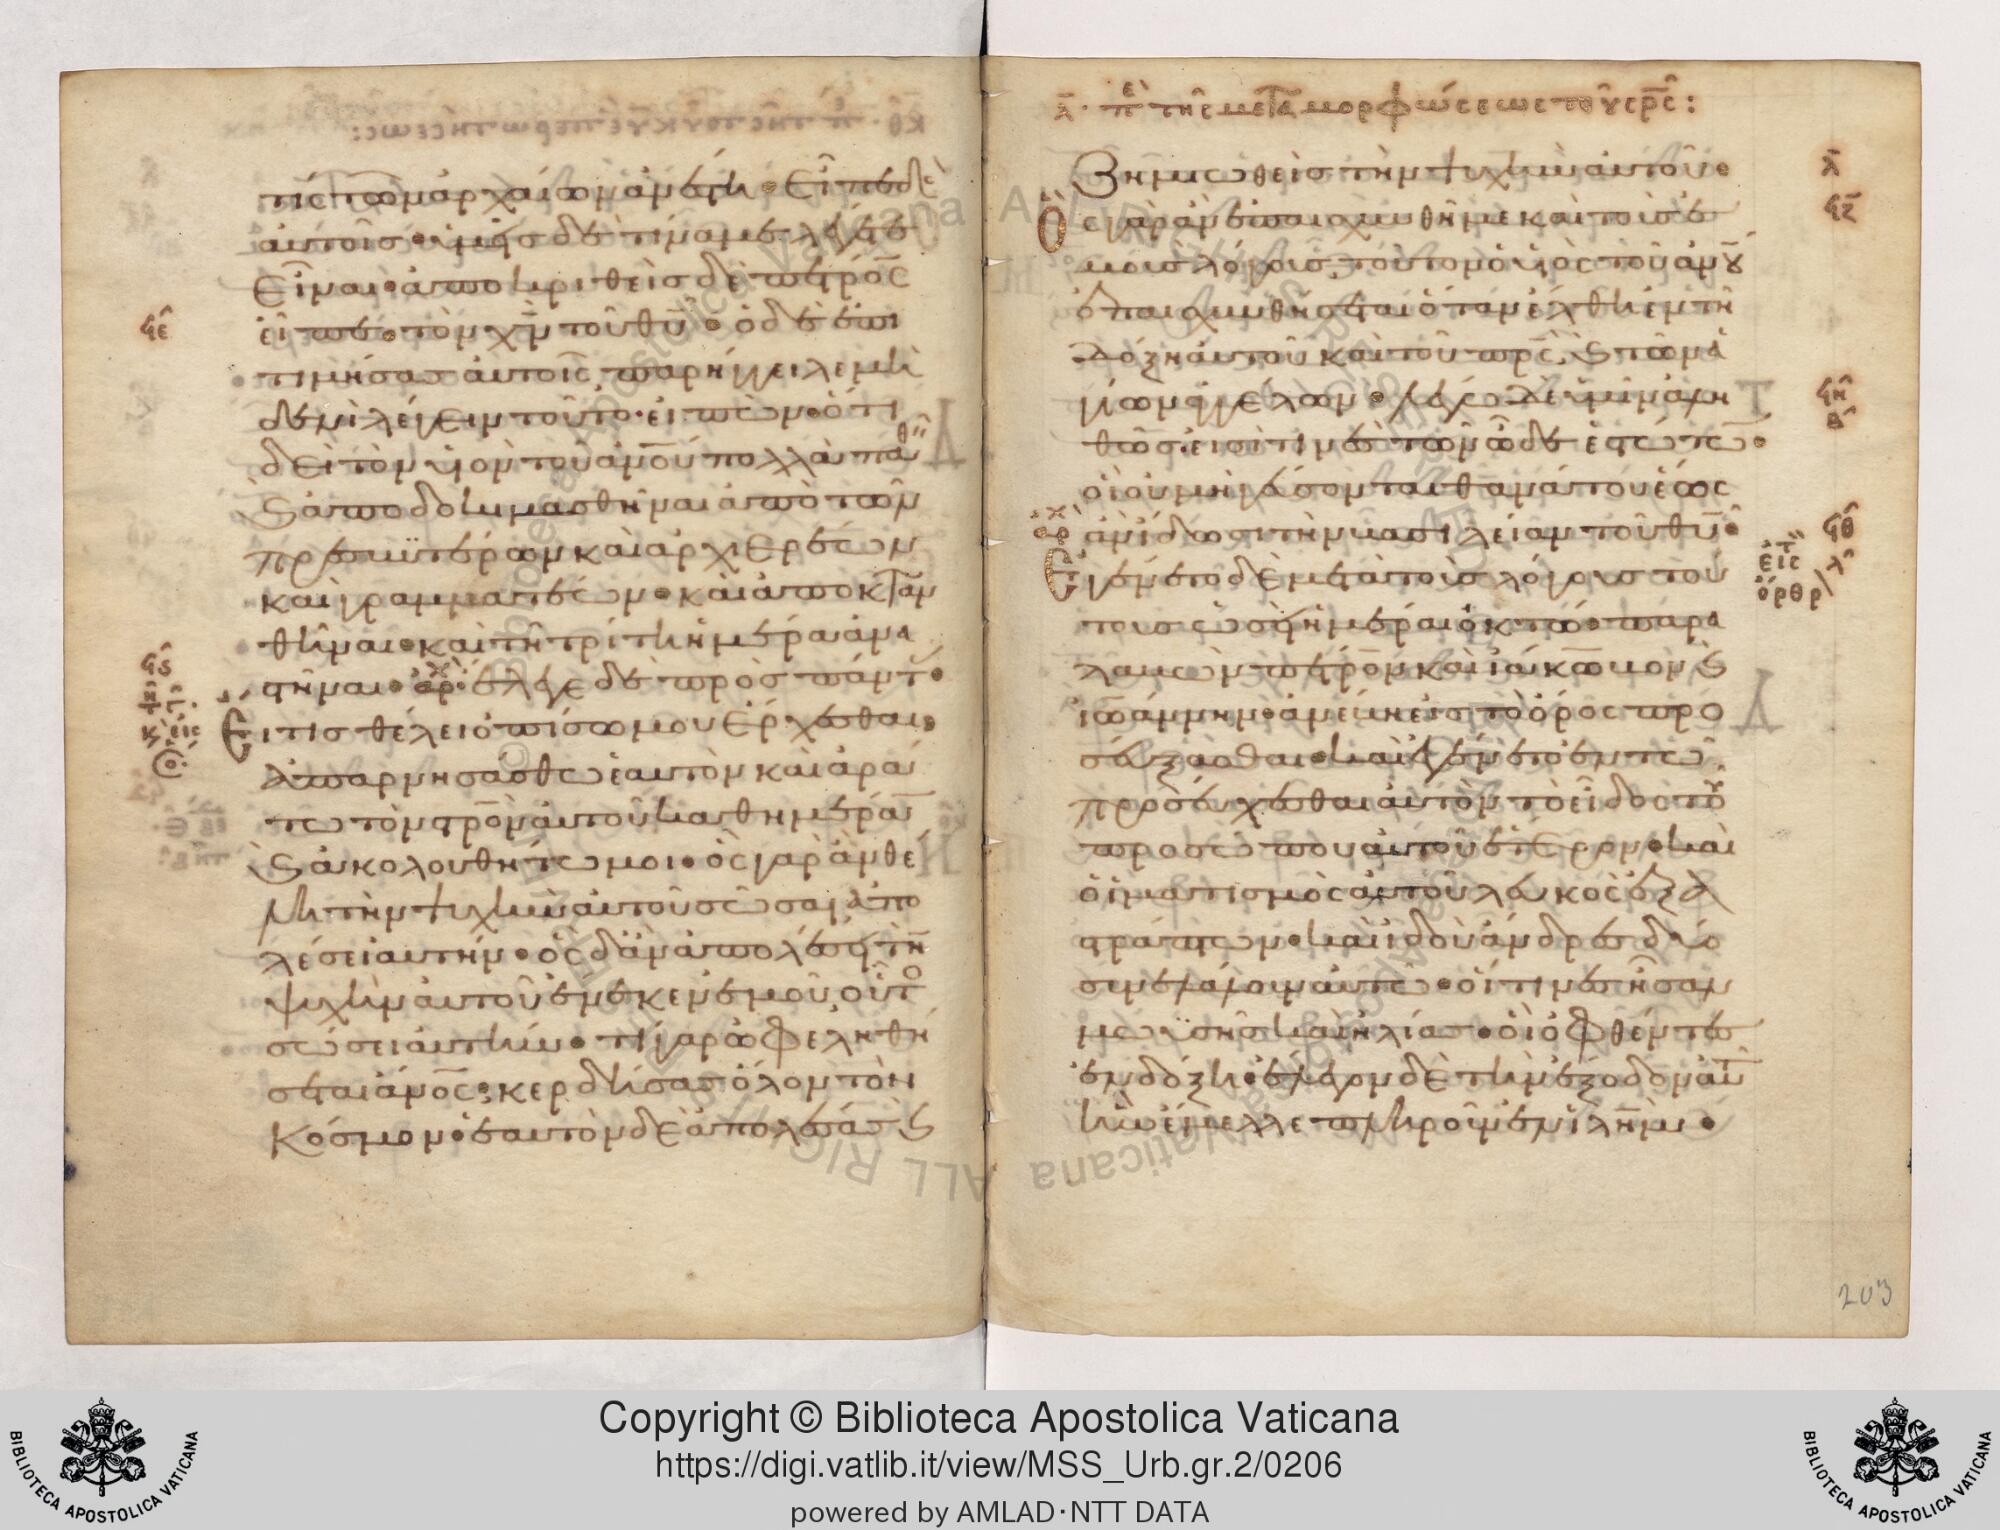 τίς τῶν ἀρχαίων ἀνέστη· εἶπε δὲ
αὐτοῖς· ὑμεῖς δὲ τίνα με λέγετε
εἶναι· ἀποκριθεὶς δὲ πετρος
εἶπε· τὸν χν τοῦ θυ· ὁ δὲ ἐπι
τιμήσας αὐτοῖς, παρήγγειλε μη
δενὶ λέγειν τοῦτο· εἰπὼν· ὅτι
δεῖ τὸν υἱὸν τοῦ ανου πολλὰ παθ
καὶ ἀποδοκιμασθῆναι ἀπὸ τῶν
πρεσβυτέρων καὶ ἀρχιερέων
καὶ γραμματέων· καὶ ἀποκταν
θῆναι· καὶ τῆ τρίτη ἡμέρα ἀνα
στῆναι· αρχ ἔλεγε δὲ πρὸς πάντ·
Εἴ τις θέλει ὀπίσω μου ἔρχεσθαι·
ἀπαρνησάσθω ἑαυτὸν καὶ ἀρά
τω τὸν στρον αὐτοῦ καθημέραν
καὶ ἀκολουθήτω μοι· ὃς γὰρ ἂν θέ
λη τὴν ψυχὴν αὐτοῦ σῶσαι ἀπο
λέσει αὐτήν· ὃς δ' ἂν ἀπολέση τὴν
ψυχὴν αὐτοῦ ἕνεκεν ἐμοῦ, οὗτο
σώσει αὐτήν· τί γὰρ ὠφεληθή
σεται ανος· κερδήσας ὅλον τὸν
κόσμον· ἑαυτὸν δὲ ἀπολέσας καὶ
ϟε
ϟϛ
λ· πε τῆς μεταμορφώσεως τοῦ σρς:
Ζημιωθεὶς τὴν ψυχὴν αὐτοῦ·
Ὃς γὰρ ἂν ἐπαισχυνθῆ με καὶ τοὺς ἐ
μοὺς λόγους, τοῦτον ὁ υἱὸς τοῦ ανου
ἐπαισχυνθήσεται ὅταν ἔλθη ἐν τῆ
δόξη αὐτοῦ καὶ τοῦ πρς, καὶ τῶν ἁ
γίων ἀγγέλων· λέγω δὲ ὑμῖν ἀλη
θῶς· εἰσί τινες τῶν ὧδε ἑστώτων·
οἳ οὐ μὴ γεύσονται θανάτου ἕως
ἂν ἴδωσι τὴν βασιλείαν τοῦ θυ·
Ἐγένετο δὲ μετὰ τοὺς λόγους τού
τους ὡσεὶ ἡμέραι ὀκτώ· παρα
λαβὼν πετρον καὶ ἰάκωβον καὶ
ἰωάννην· ἀνέβη εἰς τὸ ὄρος προ
σεύξασθαι· καὶ ἐγένετο ἐν τῶ
προσεύχεσθαι αὐτὸν τὸ εἶδος τοῦ
προσώπου αὐτοῦ ἕτερον· καὶ
ὁ ἱματισμὸς αὐτοῦ λευκὸς ἐξα
στράπτων· καὶ ἰδοὺ ἄνδρες δύο
συνελάλουν αὐτῶ· οἵτινες ἦσαν
μωϋσῆς καὶ ἡλίας· οἳ ὀφθέντες
ἐν δόξη· ἔλεγον δὲ τὴν ἔξοδον αὐτοῦ
ἣν ἔμελλε πληροῦν ἐν ἱλημ·
λ
ϟζ
ϟη
β
ϟθ
λ
εἰς τ
ὄρθρ
203
Copyright © Biblioteca Apostolica Vaticana
https://digi.vatlib.it/view/MSS_Urb.gr.2/0206
powered by AMLAD·NTT DATA
BIBLIOTECA APOSTOLICA VATICANA
BIBLIOTECA APOSTOLICA VATICANA